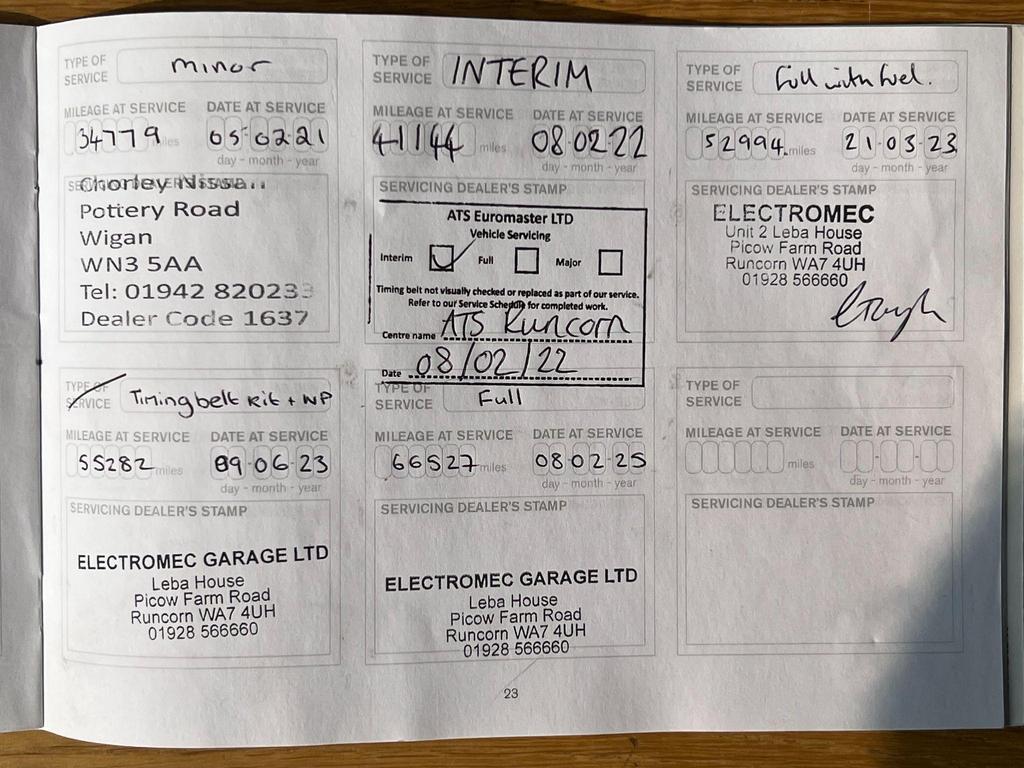 TYPE OF SERVICE minor
MILEAGE AT SERVICE DATE AT SERVICE
34779 miles 05-02-21
day - month - year
Chorley Nissa
Pottery Road
Wigan
WN3 5AA
Tel: 01942 820233
Dealer Code 1637
TYPE OF SERVICE INTERIM
MILEAGE AT SERVICE DATE AT SERVICE
41144 miles 08-02-22
day - month - year
SERVICING DEALER'S STAMP
ATS Euromaster LTD
Vehicle Servicing
Interim Full Major
Timing belt not visually checked or replaced as part of our service.
Refer to our Service Schedule for completed work.
Centre name ATS Runcorn
Date 08/02/22
TYPE OF SERVICE Full with fuel.
MILEAGE AT SERVICE DATE AT SERVICE
52994 miles 21-03-23
day - month - year
SERVICING DEALER'S STAMP
ELECTROMEC
Unit 2 Leba House
Picow Farm Road
Runcorn WA7 4UH
01928 566660
TYPE OF SERVICE Timing belt Kit + WP
MILEAGE AT SERVICE DATE AT SERVICE
55282 miles 09-06-23
day - month - year
SERVICING DEALER'S STAMP
ELECTROMEC GARAGE LTD
Leba House
Picow Farm Road
Runcorn WA7 4UH
01928 566660
TYPE OF SERVICE Full
MILEAGE AT SERVICE DATE AT SERVICE
66527 miles 08-02-25
day - month - year
SERVICING DEALER'S STAMP
ELECTROMEC GARAGE LTD
Leba House
Picow Farm Road
Runcorn WA7 4UH
01928 566660
TYPE OF SERVICE
MILEAGE AT SERVICE DATE AT SERVICE
miles
day - month - year
SERVICING DEALER'S STAMP
23